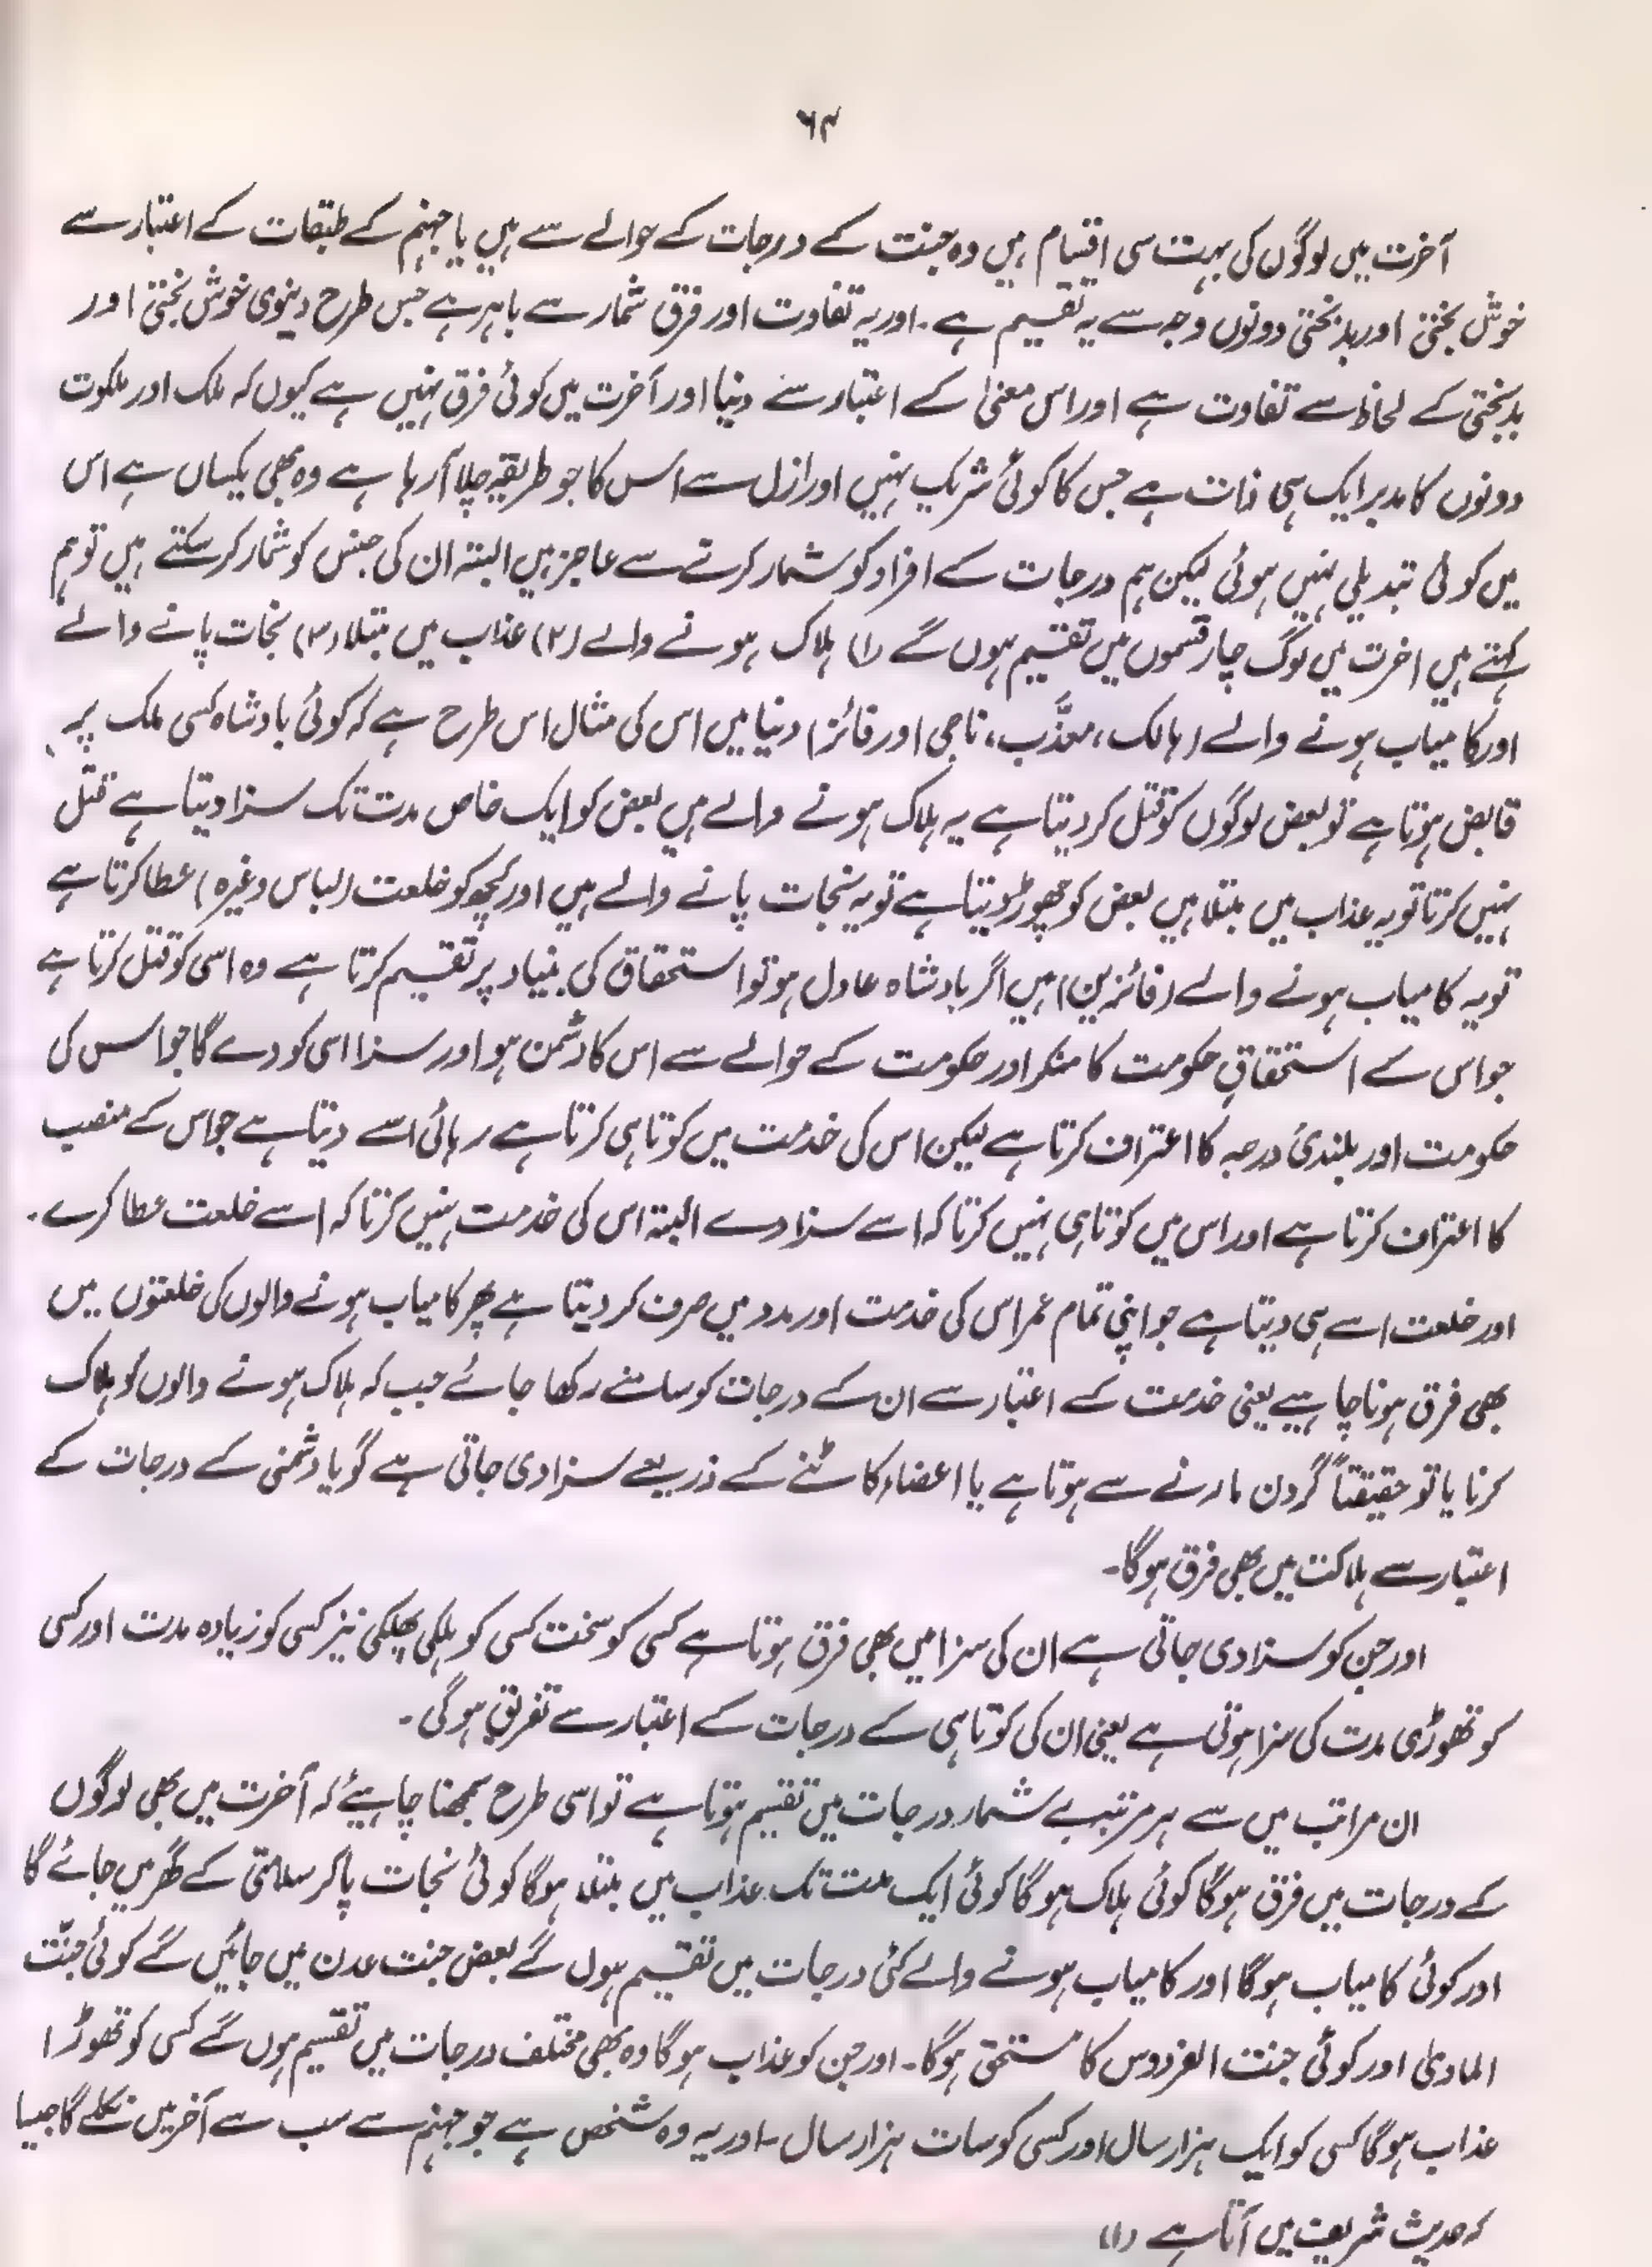 ۶۴
آخرت میں لوگوں کی بہت سی اقسام ہیں وہ جنت کے درجات کے حوالے سے ہیں یا جہنم کے طبقات کے اعتبار سے
خوش بختی اور بدبختی دونوں وجہ سے یہ تقسیم ہے۔ اور یہ تفاوت اور فرق شمار سے باہر ہے جس طرح دینوی خوش بختی اور
بدبختی کے لحاظ سے تفاوت ہے اور اس معنیٰ کے اعتبار سے دنیا اور آخرت میں کوئی فرق نہیں ہے کیوں کہ ملک اور ملکوت
دونوں کا مدبر ایک ہی ذات ہے جس کا کوئی شریک نہیں اور ازل سے اس کا جو طریقہ چلا آرہا ہے وہ بھی یکساں ہے اس
میں کوئی تبدیلی نہیں ہوئی لیکن ہم درجات کے افراد کو شمار کرتے سے عاجز ہیں البتہ ان کی جنس کو شمار کر سکتے ہیں تو ہم
کہتے ہیں اخرت میں لوگ چار قسموں میں تقسیم ہوں گے (۱) ہلاک ہونے والے (۲) عذاب میں مبتلا (۳) نجات پانے والے
اور کامیاب ہونے والے (ہالک، معذَّب، ناجی اور فائز) دنیا میں اس کی مثال اس طرح ہے کہ کوئی بادشاہ کسی ملک پر
قابض ہوتا ہے تو بعض لوگوں کو قتل کر دیتا ہے یہ ہلاک ہونے والے ہیں بعض کو ایک خاص مدت تک سزا دیتا ہے قتل
نہیں کرتا تو یہ عذاب میں مبتلا ہیں بعض کو چھوڑ دیتا ہے تو یہ نجات پانے والے ہیں اور کچھ کو خلعت (لباس وغیرہ) عطا کرتا ہے
تو یہ کامیاب ہونے والے (فائزین) ہیں اگر بادشاہ عادل ہو تو استحقاق کی بنیاد پر تقسیم کرتا ہے وہ اسی کو قتل کرتا ہے
جو اس کے استحقاقِ حکومت کا منکر اور حکومت کے حوالے سے اس کا دشمن ہو اور سزا اسی کو دے گا جو اس کی
حکومت اور بلندیٔ درجہ کا اعتراف کرتا ہے لیکن اس کی خدمت میں کوتاہی کرتا ہے رہائی اسے دیتا ہے جو اس کے منصب
کا اعتراف کرتا ہے اور اس میں کوتاہی نہیں کرتا کہ اسے سزا دے البتہ اس کی خدمت نہیں کرتا کہ اسے خلعت عطا کرے۔
اور خلعت اسے ہی دیتا ہے جو اپنی تمام عمر اس کی خدمت اور مدد میں صرف کر دیتا ہے پھر کامیاب ہونے والوں کی خلعتوں میں
بھی فرق ہونا چاہیے یعنی خدمت کے اعتبار سے ان کے درجات کو سامنے رکھا جائے جب کہ ہلاک ہونے والوں کو ہلاک
کرنا یا تو حقیقتاً گردن مارنے سے ہوتا ہے یا اعضاء کاٹنے کے ذریعے سزا دی جاتی ہے گویا دشمنی کے درجات کے
اعتبار سے ہلاکت میں بھی فرق ہوگا۔
اور جن کو سزا دی جاتی ہے ان کی سزا میں بھی فرق ہوتا ہے کسی کو سخت کسی کو ہلکی پھلکی نیز کسی کو زیادہ مدت اور کسی
کو تھوڑی مدت کی سزا ہوتی ہے یعنی ان کی کوتاہی کے درجات کے اعتبار سے تفریق ہوگی۔
ان مراتب میں سے ہر مرتبہ بے شمار درجات میں تقسیم ہوتا ہے تو اسی طرح سمجھنا چاہیئے کہ آخرت میں بھی لوگوں
کے درجات میں فرق ہوگا کوئی ہلاک ہوگا کوئی ایک مدت تک عذاب میں مبتلا ہوگا کوئی نجات پاکر سلامتی کے گھر میں جائے گا
اور کوئی کامیاب ہوگا اور کامیاب ہونے والے کئی درجات میں تقسیم ہوں گے بعض جنت عدن میں جائیں گے کوئی جنّت
الماویٰ اور کوئی جنت الفردوس کا مستحق ہوگا۔ اور جن کو عذاب ہوگا وہ بھی مختلف درجات میں تقسیم ہوں گے کسی کو تھوڑا
عذاب ہوگا کسی کو ایک ہزار سال اور کسی کو سات ہزار سال۔ اور یہ وہ شخص ہے جو جہنم سے سب سے آخر میں نکلے گا جیسا
کہ حدیث شریف میں آتا ہے (۱)